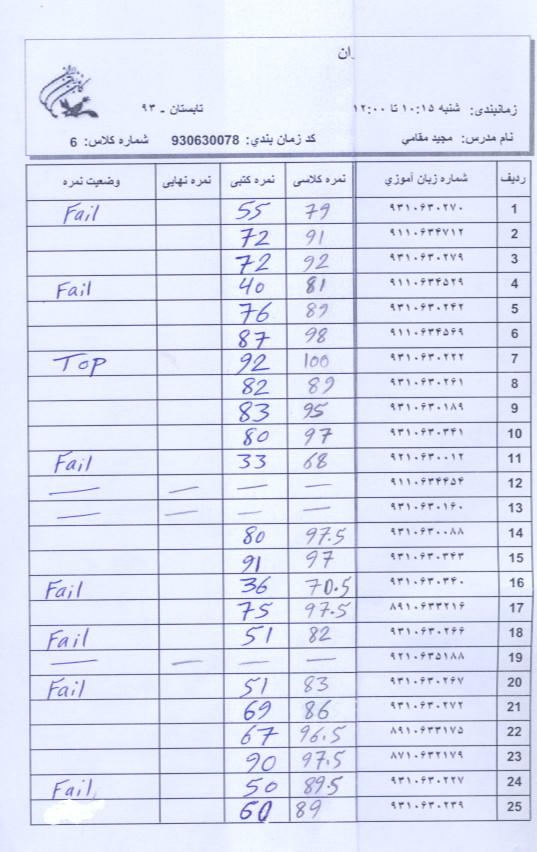 ران
زمانبندی: شنبه ۱۰:۱۵ تا ۱۲:۰۰ تابستان - ۹۳
نام مدرس: مجید مقامی کد زمان بندي: 930630078 شماره کلاس: 6
ردیف شماره زبان آموزي نمره کلاسی نمره کتبی نمره نهایی وضعیت نمره
1 ۹۳۱۰۶۳۰۲۷۰ 79 55 Fail
2 ۹۱۱۰۶۳۴۷۱۲ 91 72
3 ۹۳۱۰۶۳۰۲۷۹ 92 72
4 ۹۱۱۰۶۳۴۵۲۹ 81 40 Fail
5 ۹۳۱۰۶۳۰۲۴۲ 89 76
6 ۹۱۱۰۶۳۴۵۶۹ 98 87
7 ۹۳۱۰۶۳۰۲۲۲ 100 92 Top
8 ۹۳۱۰۶۳۰۲۶۱ 89 82
9 ۹۳۱۰۶۳۰۱۸۹ 95 83
10 ۹۳۱۰۶۳۰۳۴۱ 97 80
11 ۹۲۱۰۶۳۰۰۱۲ 68 33 Fail
12 ۹۱۱۰۶۳۴۴۵۴ — — — —
13 ۹۳۱۰۶۳۰۱۶۰ — — — —
14 ۹۳۱۰۶۳۰۰۸۸ 97.5 80
15 ۹۳۱۰۶۳۰۳۴۳ 97 91
16 ۹۳۱۰۶۳۰۳۴۰ 70.5 36 Fail
17 ۸۹۱۰۶۳۳۲۱۶ 97.5 75
18 ۹۳۱۰۶۳۰۲۶۶ 82 51 Fail
19 ۹۲۱۰۶۳۵۱۸۸ — — — —
20 ۹۳۱۰۶۳۰۲۶۷ 83 51 Fail
21 ۹۳۱۰۶۳۰۲۷۲ 86 69
22 ۸۹۱۰۶۳۳۱۷۵ 96.5 67
23 ۸۷۱۰۶۳۲۱۷۹ 97.5 90
24 ۹۳۱۰۶۳۰۲۲۷ 89.5 50 Fail
25 ۹۳۱۰۶۳۰۲۳۹ 89 60